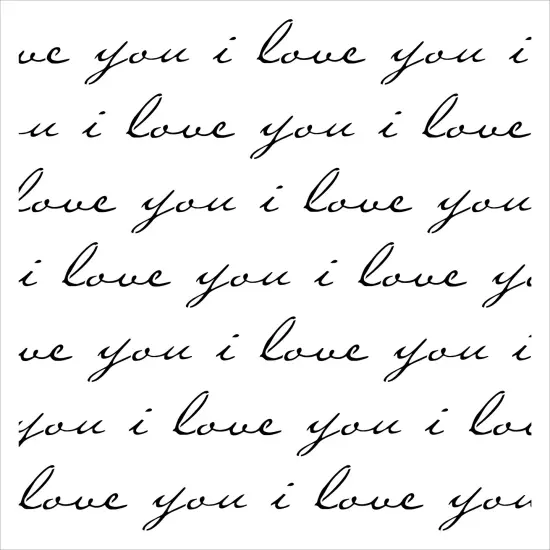 ve you i love you i
u i love you i love
love you i love you
i love you i love y
ve you i love you i
you i love you i lov
love you i love you